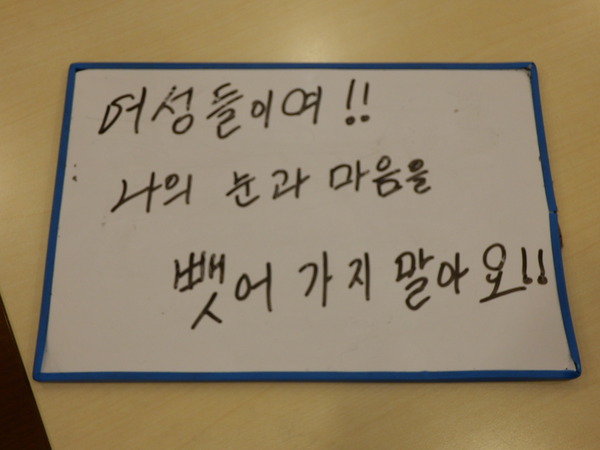 여성들이여!!
나의 눈과 마음을
뺏어 가지 말아요!!